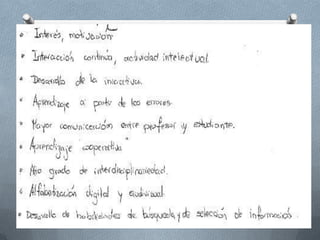 • Interés, motivación
• Interacción continua, actividad intelectual.
• Desarrollo de la iniciativa.
• Aprendizaje a partir de los errores.
• Mayor comunicación entre profesor y estudiante.
• Aprendizaje cooperativo
• Alto grado de interdisciplinariedad.
• Alfabetización digital y audiovisual.
• Desarrollo de habilidades de búsqueda y de selección de información.